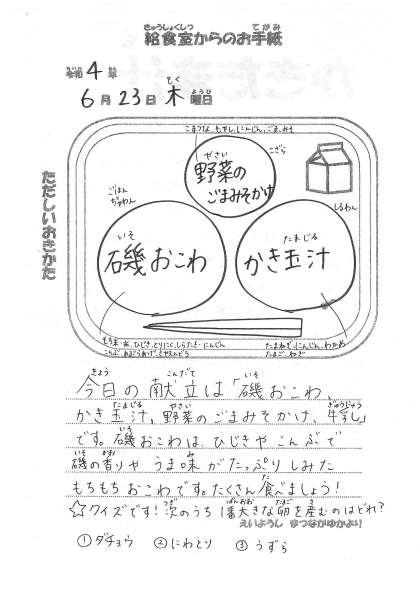 きゅうしょくしつ てがみ
給食室からのお手紙
令和 4 年
6月 23日 木曜日
ただしいおきかた
こまつな、もやし、にんじん、ごま、みそ
やさい
野菜の
ごまみそかけ
こざら
ごはん
ぢゃわん
しるわん
いそ
磯おこわ
たまじる
かき玉汁
もち米・米、ひじき、とりにく、しらたき・にんじん
こんぶ、あぶらあげ、さやえんどう
たまねぎ、にんじん、わかめ
たまご、ねぎ
きょう こんだて いそ
今日の献立は「磯おこわ、
たまじる やさい ぎゅうにゅう
かき玉汁、野菜のごまみそかけ、牛乳」
いそ
です。磯おこわは、ひじきやこんぶで
いそ かお み
磯の香りやうま味がたっぷりしみた
た
もちもちおこわです。たくさん食べましょう！
つぎ ばんおお たまご う
☆クイズです！次のうち1番大きな卵を産むのはどれ？
えいようし まつながゆかより
①ダチョウ ②にわとり ③うずら